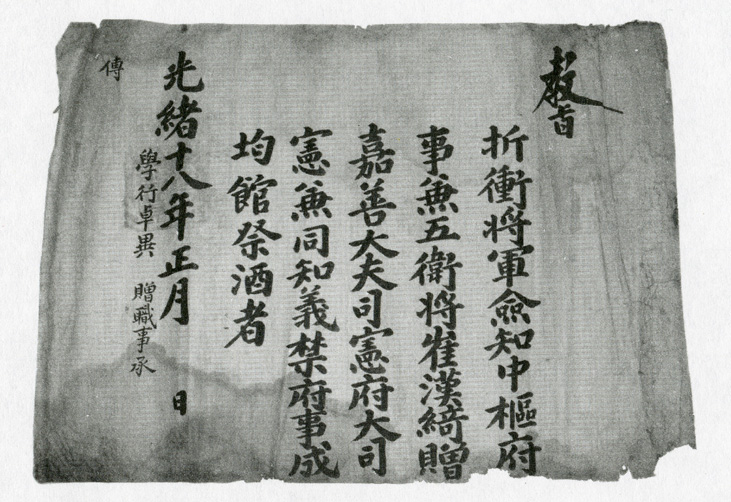 敎旨
折衝將軍僉知中樞府
事兼五衛將崔漢綺贈
嘉善大夫司憲府大司
憲兼同知義禁府事成
均館祭酒者
光緖十八年正月 日
學行卓異 贈職事承
傳